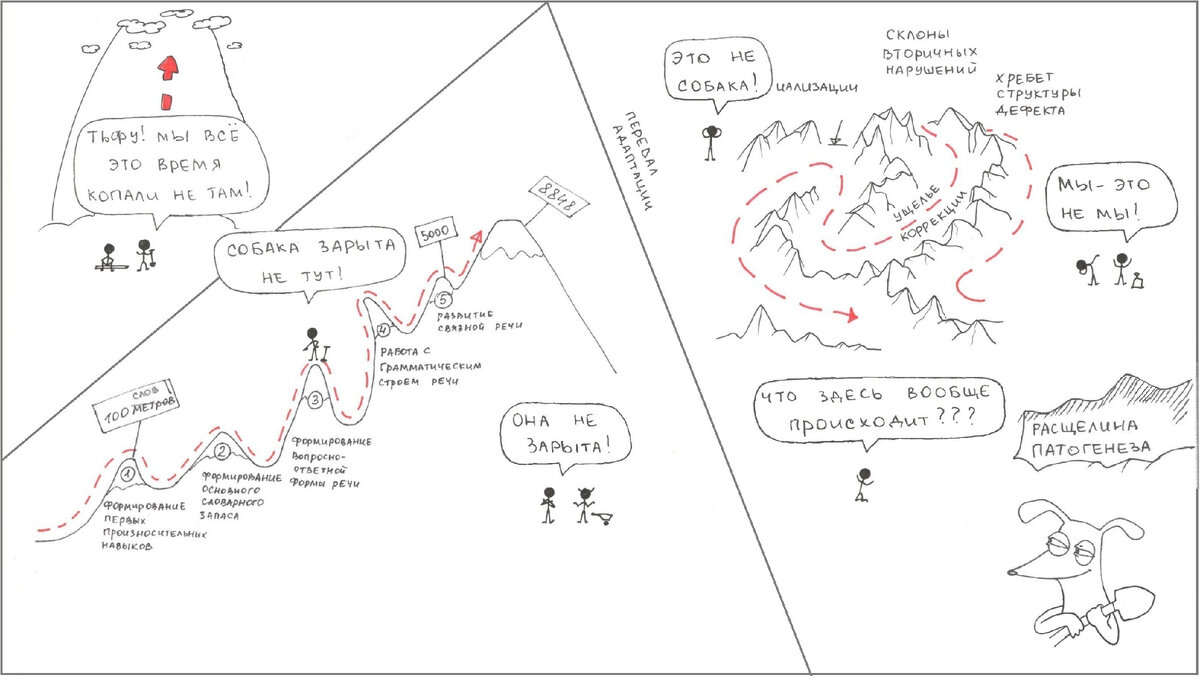 ТЬФУ! МЫ ВСЁ
ЭТО ВРЕМЯ
КОПАЛИ НЕ ТАМ!
СОБАКА ЗАРЫТА
НЕ ТУТ!
8848
5000
СЛОВ
100 МЕТРОВ
1
ФОРМИРОВАНИЕ
ПЕРВЫХ
ПРОИЗНОСИТЕЛЬНЫХ
НАВЫКОВ
2
ФОРМИРОВАНИЕ
ОСНОВНОГО
СЛОВАРНОГО
ЗАПАСА
3
ФОРМИРОВАНИЕ
ВОПРОСНО-
ОТВЕТНОЙ
ФОРМЫ РЕЧИ
4
РАБОТА С
ГРАММАТИЧЕСКИМ
СТРОЕМ РЕЧИ
5
РАЗВИТИЕ
СВЯЗНОЙ РЕЧИ
ОНА НЕ
ЗАРЫТА!
ПЕРЕВАЛ
АДАПТАЦИИ
ЭТО НЕ
СОБАКА!
ИАЛИЗАЦИИ
СКЛОНЫ
ВТОРИЧНЫХ
НАРУШЕНИЙ
ХРЕБЕТ
СТРУКТУРЫ
ДЕФЕКТА
УЩЕЛЬЕ
КОРРЕКЦИИ
МЫ - ЭТО
НЕ МЫ!
ЧТО ЗДЕСЬ ВООБЩЕ
ПРОИСХОДИТ???
РАСЩЕЛИНА
ПАТОГЕНЕЗА